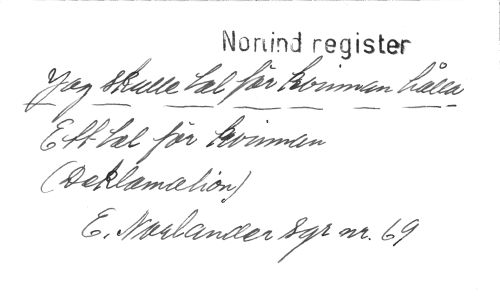 Norlind register
Jag skulle tal för kvinnan hålla
Ett tal för kvinnan
(Deklamation)
E. Norlander Sgr nr. 69